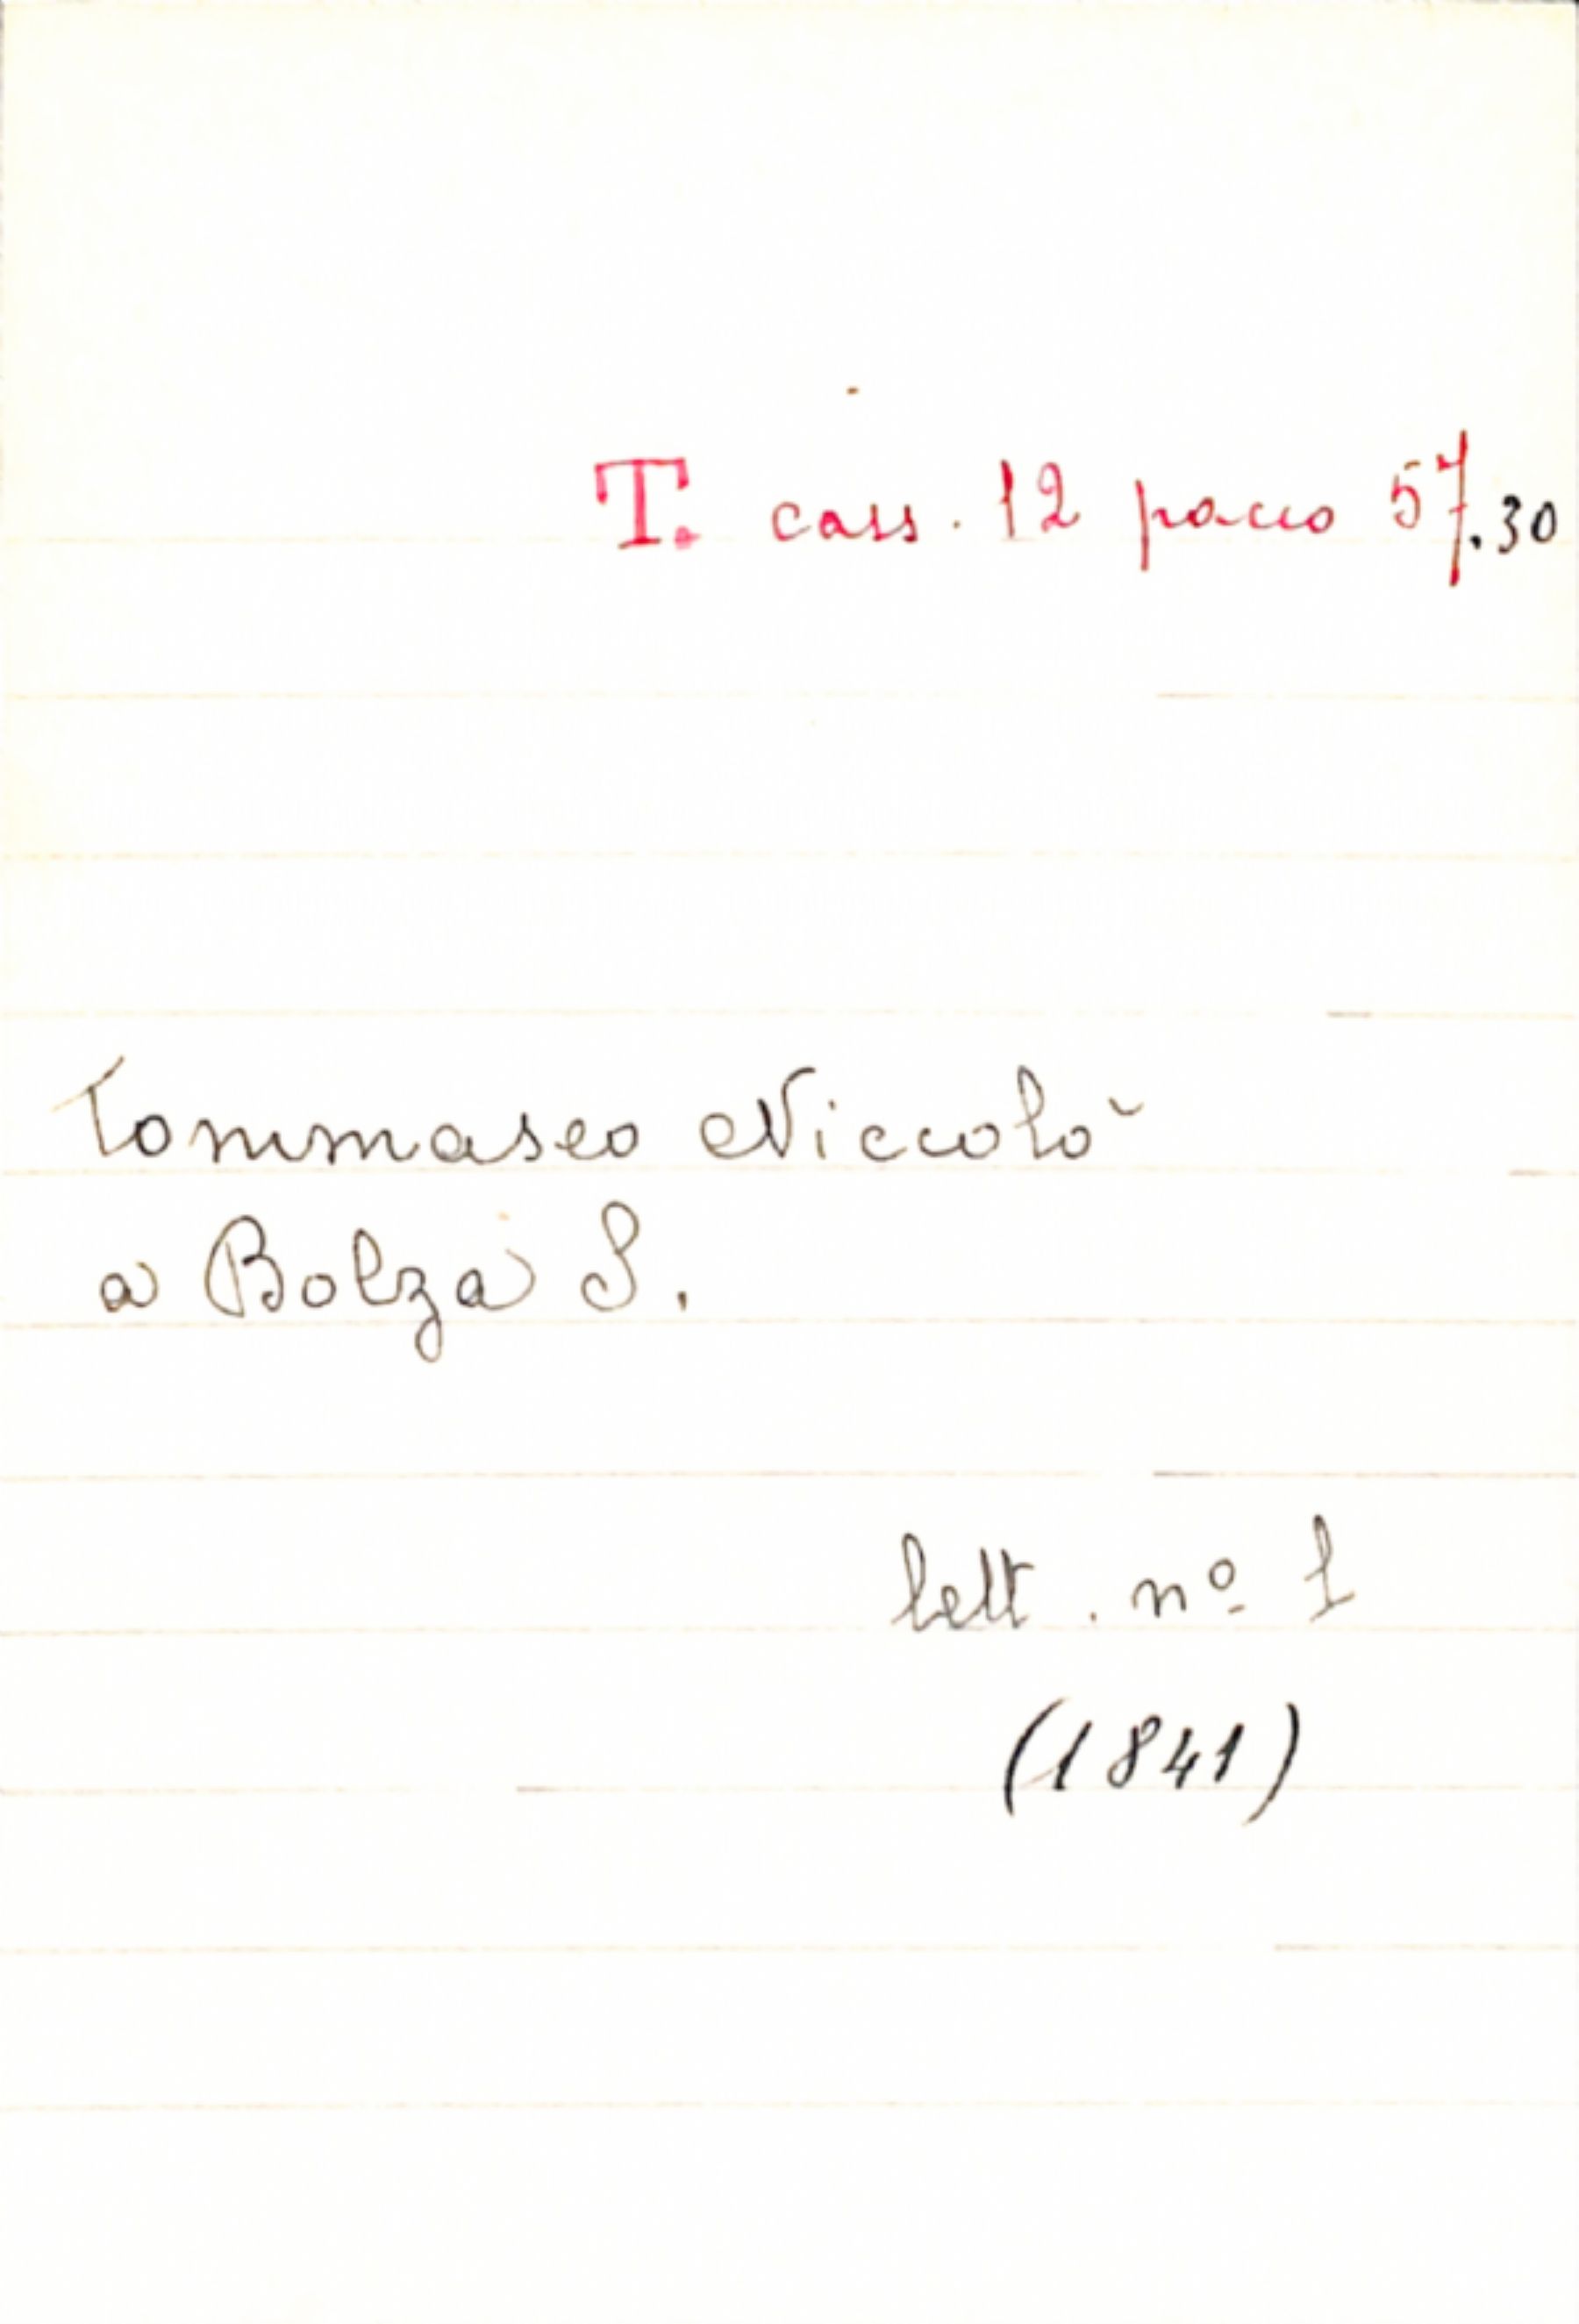 T. cass. 12 pacco 57.30
Tommaseo Niccolò
a Bolza S.
lett. nº 1
(1841)